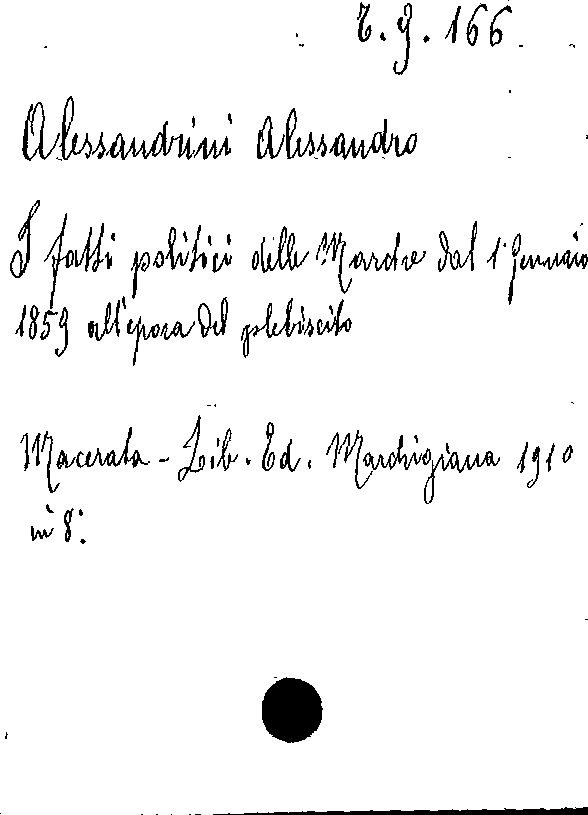 7. 9. 166
Alessandrini Alessandro
I fatti politici delle Marche dal 1° Gennaio
1859 all'epoca del plebiscito
Macerata - Lib. Ed. Marchigiana 1910
in 8°.